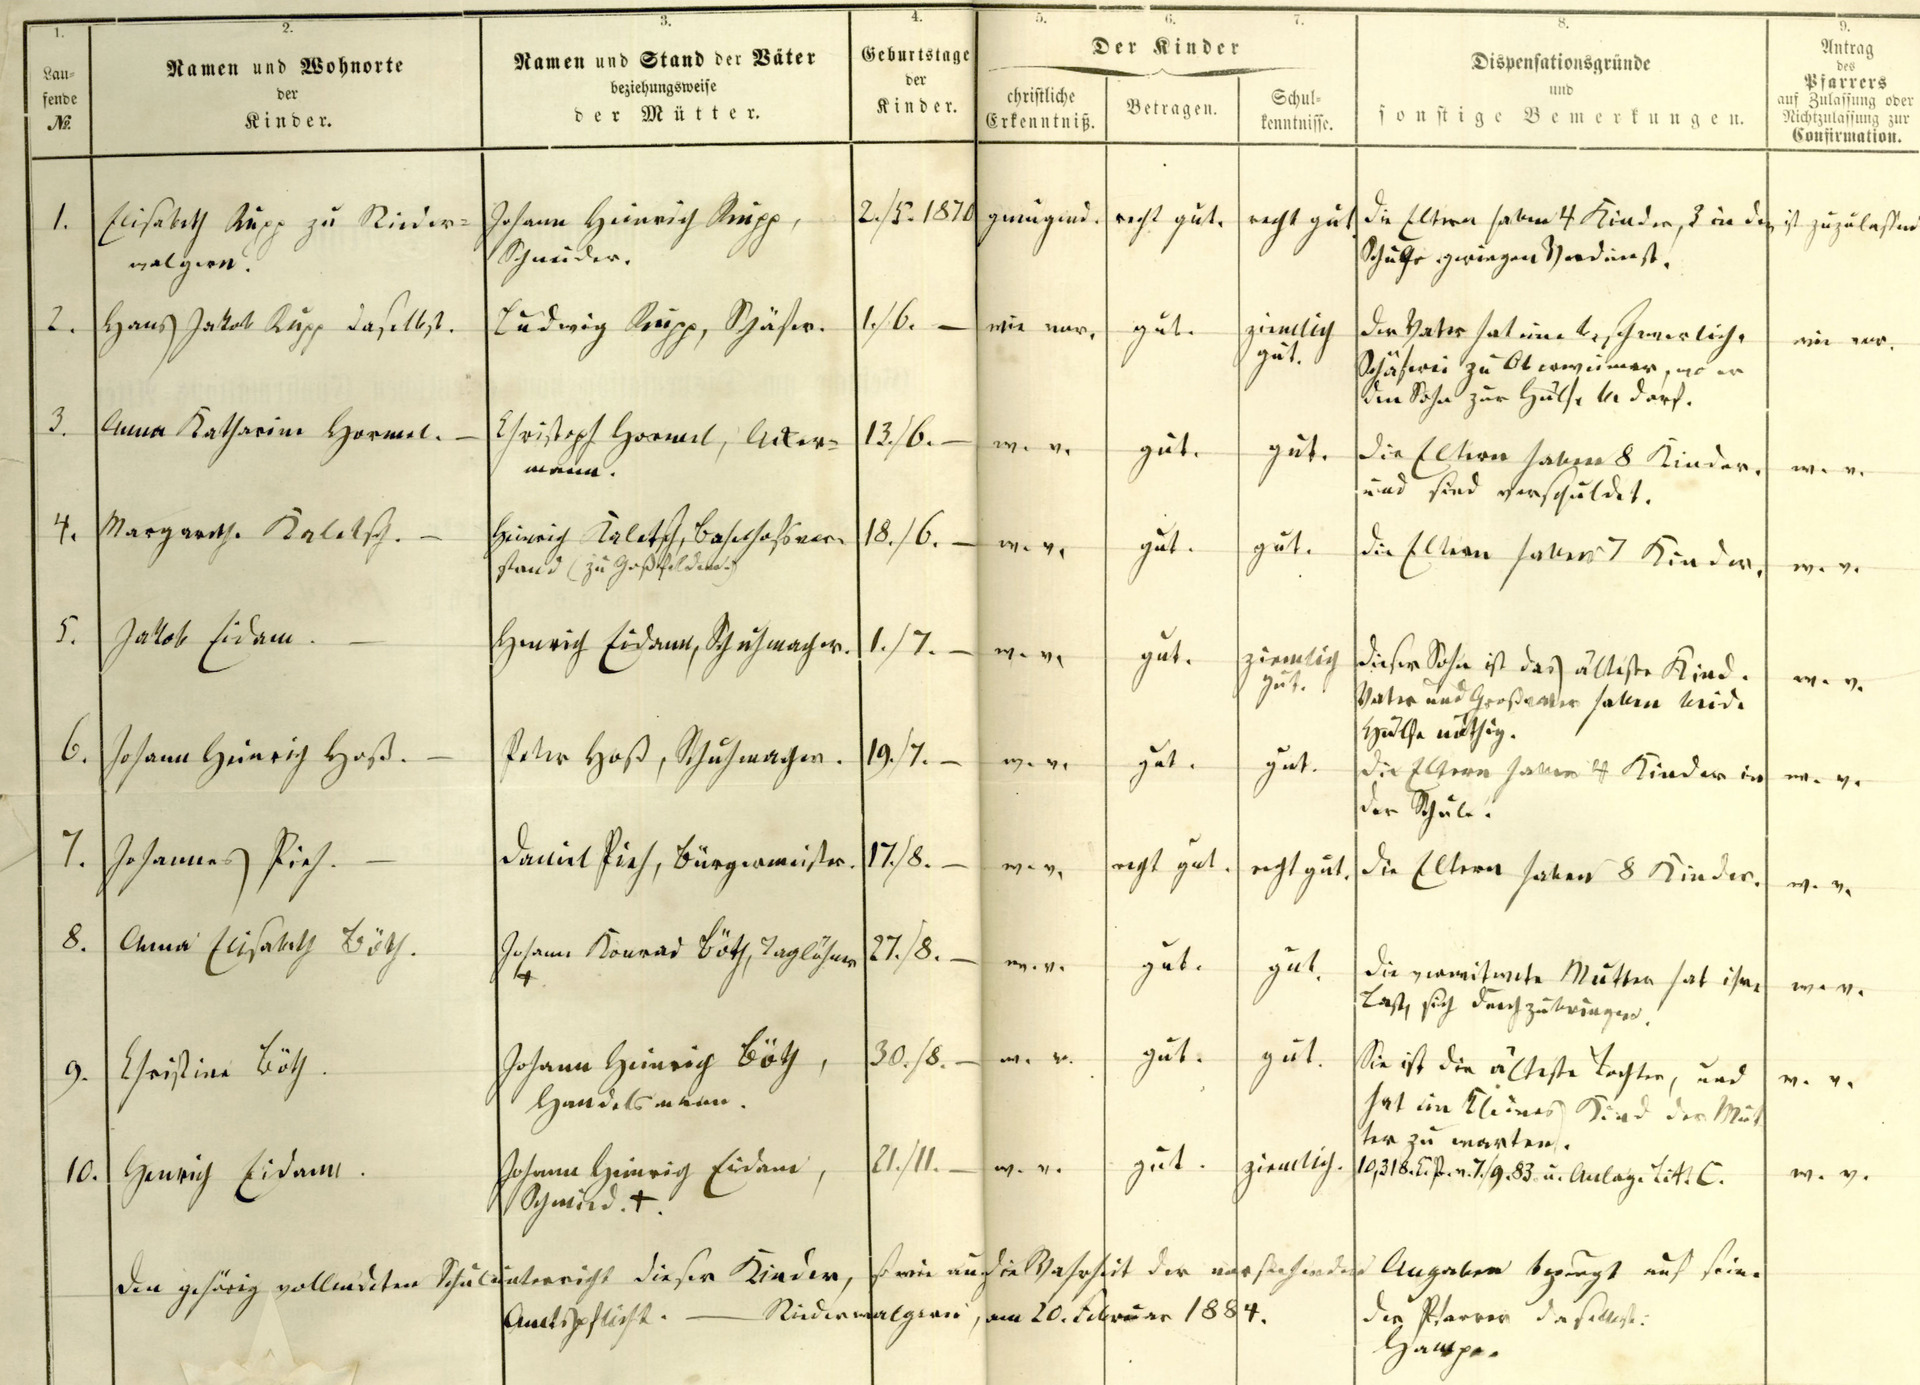 1. 2. 3. 4. 5. 6. 7. 8. 9.
Lau-
fende
№.
Namen und Wohnorte
der
Kinder.
Namen und Stand der Väter
beziehungsweise
der Mütter.
Geburtstage
der
Kinder.
Der Kinder
christliche
Erkenntniß.
Betragen.
Schul-
kenntnisse.
Dispensationsgründe
und
sonstige Bemerkungen.
Antrag
des
Pfarrers
auf Zulassung oder
Nichtzulassung zur
Confirmation.
1. Elisabeth Rupp zu Nieder- Johann Heinrich Rupp, 2./5. 1870 genügend. recht gut. recht gut. Die Eltern haben 4 Kinder, 3 in der ist zuzulassen
walgern. Schneider. Schule geringen Verdienst.
2. Hans Jakob Rupp daselbst. Ludwig Rupp, Schäfer. 1./6. — wie vor. gut. ziemlich Der Vater hat eine beschwerliche wie vor.
gut. Schäferei zu Oberweimar, wo er
den Sohn zur Hülfe bedarf.
3. Anna Katharine Hormel. — Christoph Hormel, Acker- 13./6. — w. v. gut. gut. Die Eltern haben 8 Kinder. w. v.
mann. und sind verschuldet.
4. Margarethe Kaletsch. — Heinrich Kaletsch, Bahnhofsvor- 18./6. — w. v. gut. gut. Die Eltern haben 7 Kinder. w. v.
stand (zu Goßfelden.)
5. Jakob Eidam. — Henrich Eidam, Schuhmacher. 1./7. — w. v. gut. ziemlich Dieser Sohn ist das älteste Kind. w. v.
gut. Vater und Großvater haben beide
Hülfe nöthig.
6. Johann Heinrich Hoß. — Peter Hoß, Schuhmacher. 19./7. — w. v. gut. gut. Die Eltern haben 4 Kinder in w. v.
der Schule.
7. Johannes Pieh. — Daniel Pieh, Bürgermeister. 17./8. — w. v. recht gut. recht gut. Die Eltern haben 8 Kinder. w. v.
8. Anna Elisabeth Böth. Johann Konrad Böth, Taglöhner 27./8. — w. v. gut. gut. Die verwitwete Mutter hat ihre w. v.
+ Last, sich durchzubringen.
9. Christine Böth. Johann Heinrich Böth, 30./8. — w. v. gut. gut. Sie ist die älteste Tochter, und w. v.
Handelsmann. hat ein kleines Kind der Mut
ter zu warten.
10. Henrich Eidam. Johann Heinrich Eidam, 21./11. — w. v. gut. ziemlich. 10,318. v. 7./9. 83. u. Anlage Litt. C. w. v.
Schmied. +.
Den gehörig vollendeten Schulunterricht dieser Kinder, sowie auch die Wahrheit der vorstehenden Angaben bezeugt auf seine
Amtspflicht. — Niederwalgern, am 20. Februar 1884. Der Pfarrer daselbst:
Hampe.